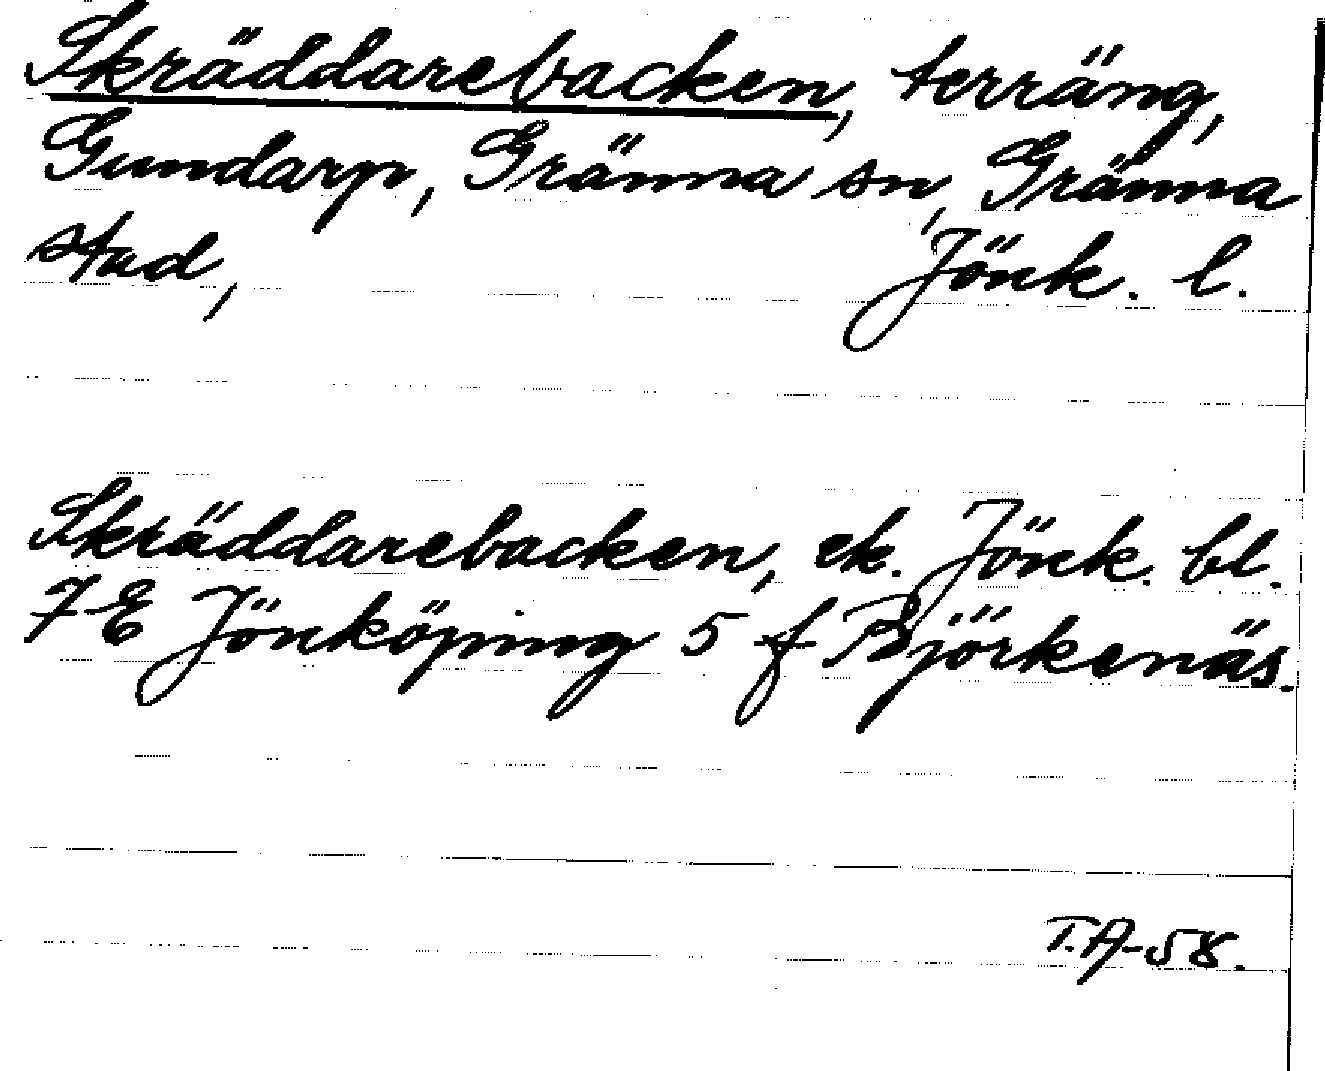 Skräddarebacken, terräng,
Gundarp, Gränna sn, Gränna
stad, Jönk. l.
Skräddarebacken, ek. Jönk. bl.
7 E Jönköping 5 f Björkenäs.
T.A-58.